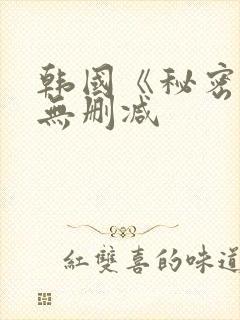 韩國《秘密
無删减
紅雙喜的味道